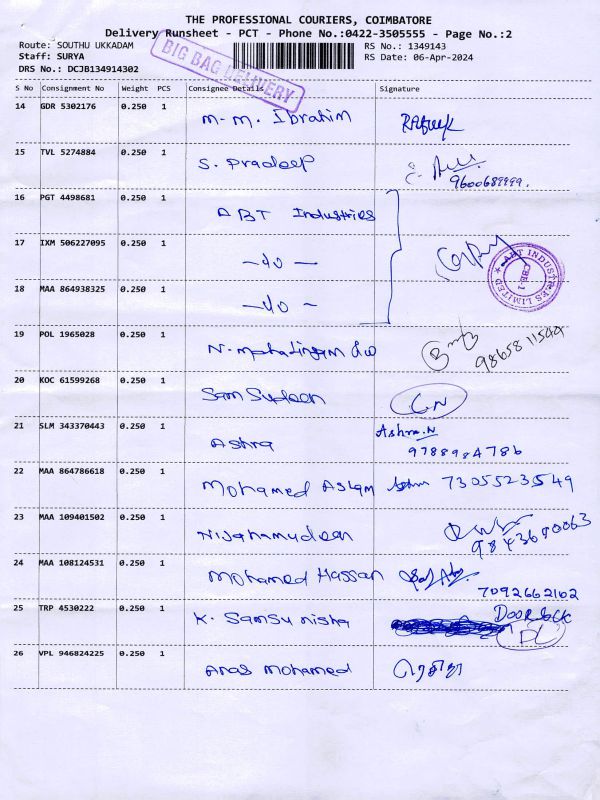 THE PROFESSIONAL COURIERS, COIMBATORE
Delivery Runsheet - PCT - Phone No.:0422-3505555 - Page No.:2
Route: SOUTHU UKKADAM
RS No.: 1349143
Staff: SURYA
RS Date: 06-Apr-2024
DRS No.: DCJB134914302
BIG BAG DELIVERY
S No Consignment No Weight PCS Consignee Details Signature
14 GDR 5302176 0.250 1 M.M. Ibrahim
15 TVL 5274884 0.250 1 S. Pradeep
9600689999.
16 PGT 4498681 0.250 1 ABT Industries
17 IXM 506227095 0.250 1
ABT INDUSTRIES LIMITED
CBE-1
18 MAA 864938325 0.250 1
19 POL 1965028 0.250 1
20 KOC 61599268 0.250 1 C.N
21 SLM 343370443 0.250 1 Ashra Ashra.N
9788984786
22 MAA 864786618 0.250 1 Mohamed Aslam 7305523549
23 MAA 109401502 0.250 1 Nijahamudeen
9843690063
24 MAA 108124531 0.250 1 Mohamed Hassan
7092662102
25 TRP 4530222 0.250 1 K. Samsu nisha DOOR LOCK
DL
26 VPL 946824225 0.250 1 Anas Mohamed